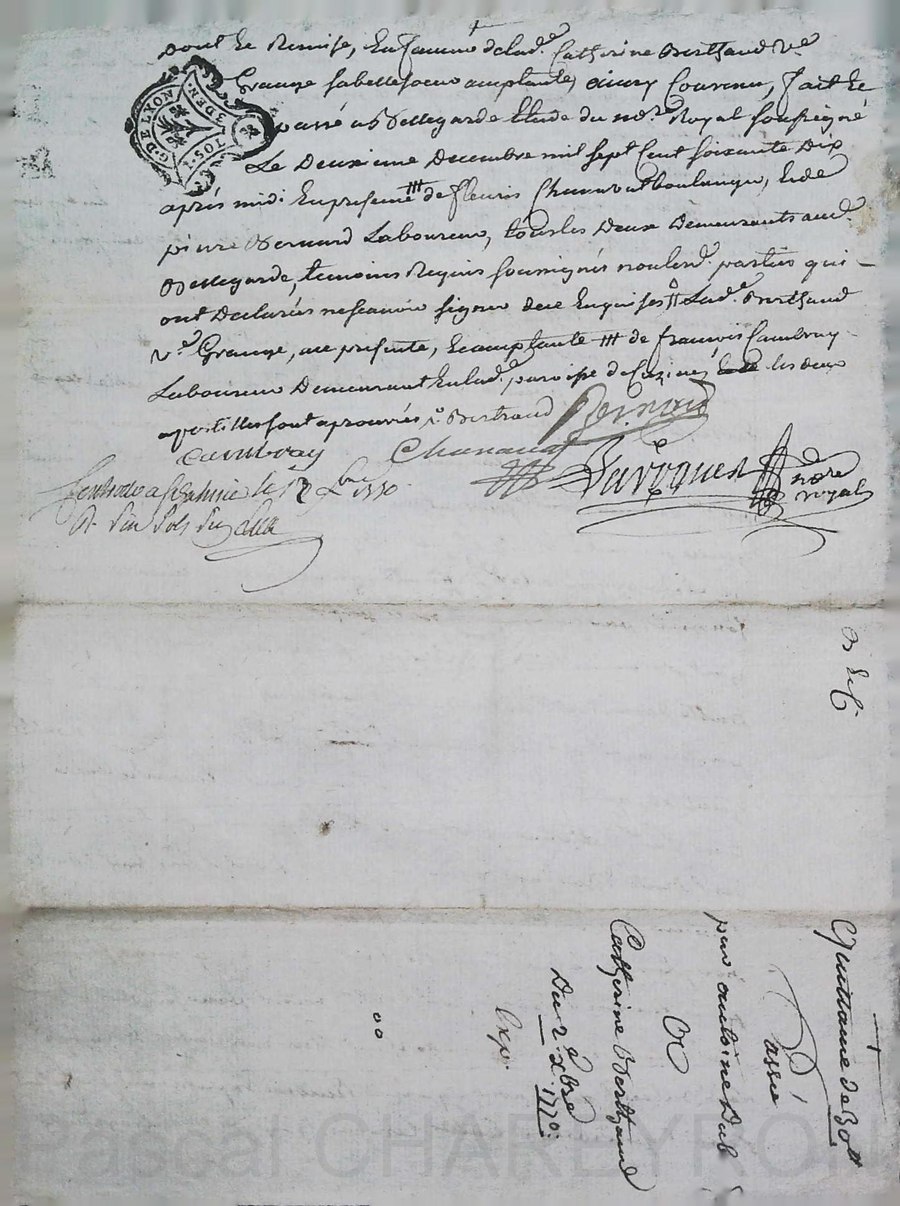 dont et Remise, En faveur de lad.e Catherine Berthaud v.e
Grange sa belle soeur acceptante, ainsy Convenu, fait et
passé a Bellegarde Etude du no.re Royal soussigné
Le Deuxieme Decembre mil sept Cent soixante Dix
après midi En presence de fleuris Chanavat boulanger, Et de
pierre Bernard Laboureur, tous les Deux Demeurants aud.
Bellegarde, temoins Requis soussignés non lesd. parties qui
ont Declarées ne scavoir signer de ce Enquises Lad.e Berthaud
v.e Grange, cy presente, Et acceptante de françois Cambray
Laboureur Demeurant En lad. paroisse de les deux
apostilles sont aprouvées Bertraud Bernard
Cambray Chanavat
no.re
royal
G. DE LYON
3 DEN.
1. SOL
Controlé a le 12 Xbre 1770
R. Six Sols Six
Quittance de 30 lt
Passée
par antoine Dub
A
Catherine Berthaud
Du 2.e Xbre 1770.
Exp.
Pascal CHAREYRON